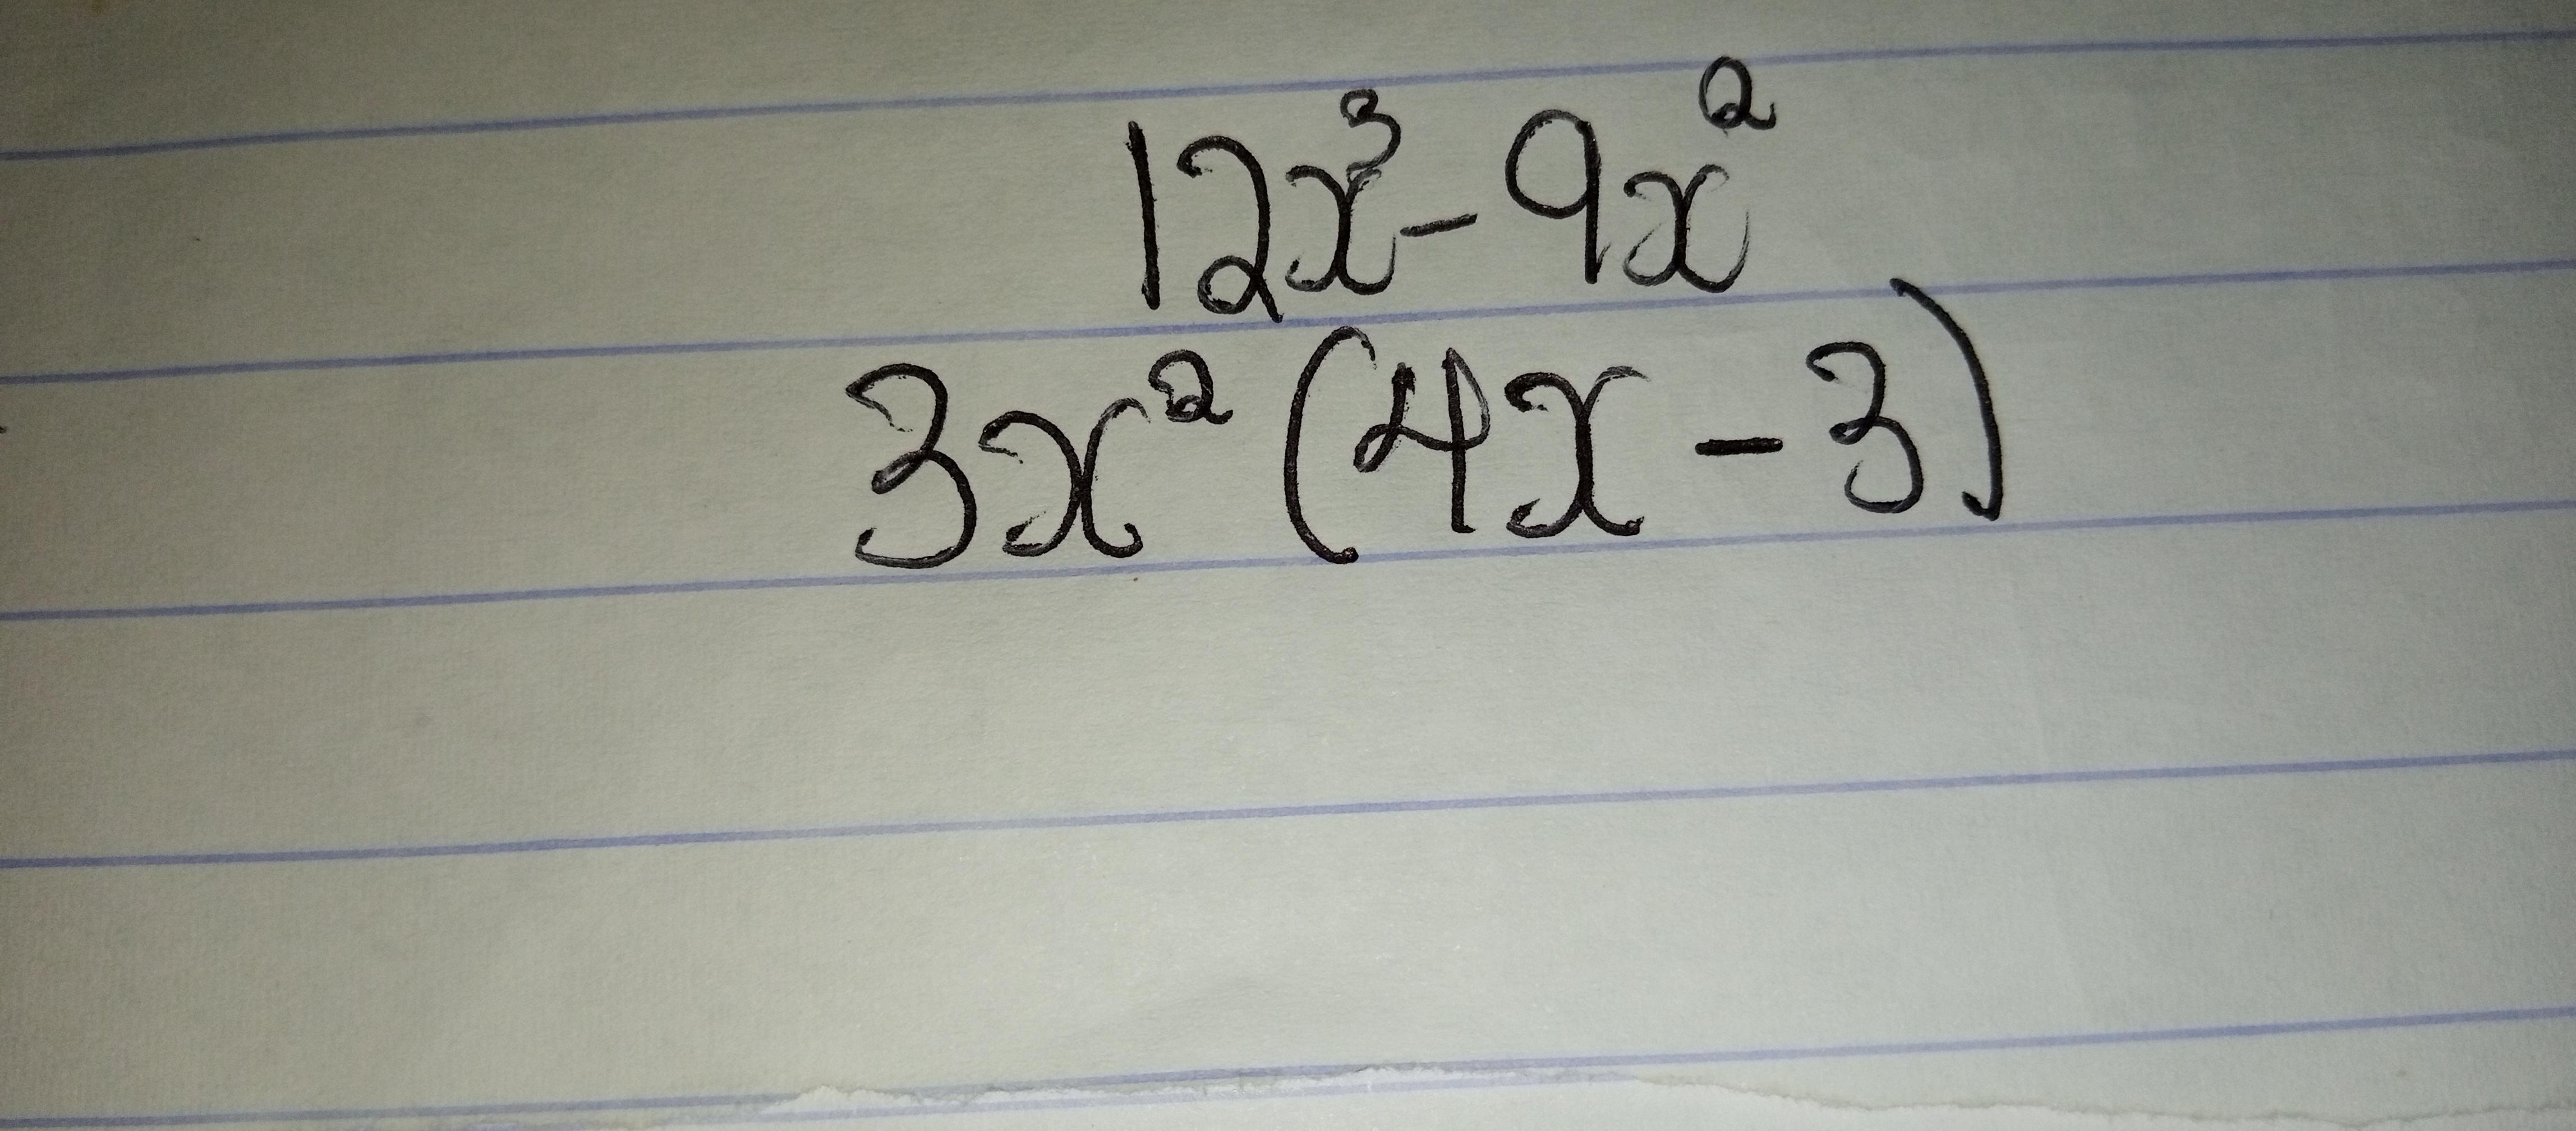 12x³-9x²
3x²(4x-3)